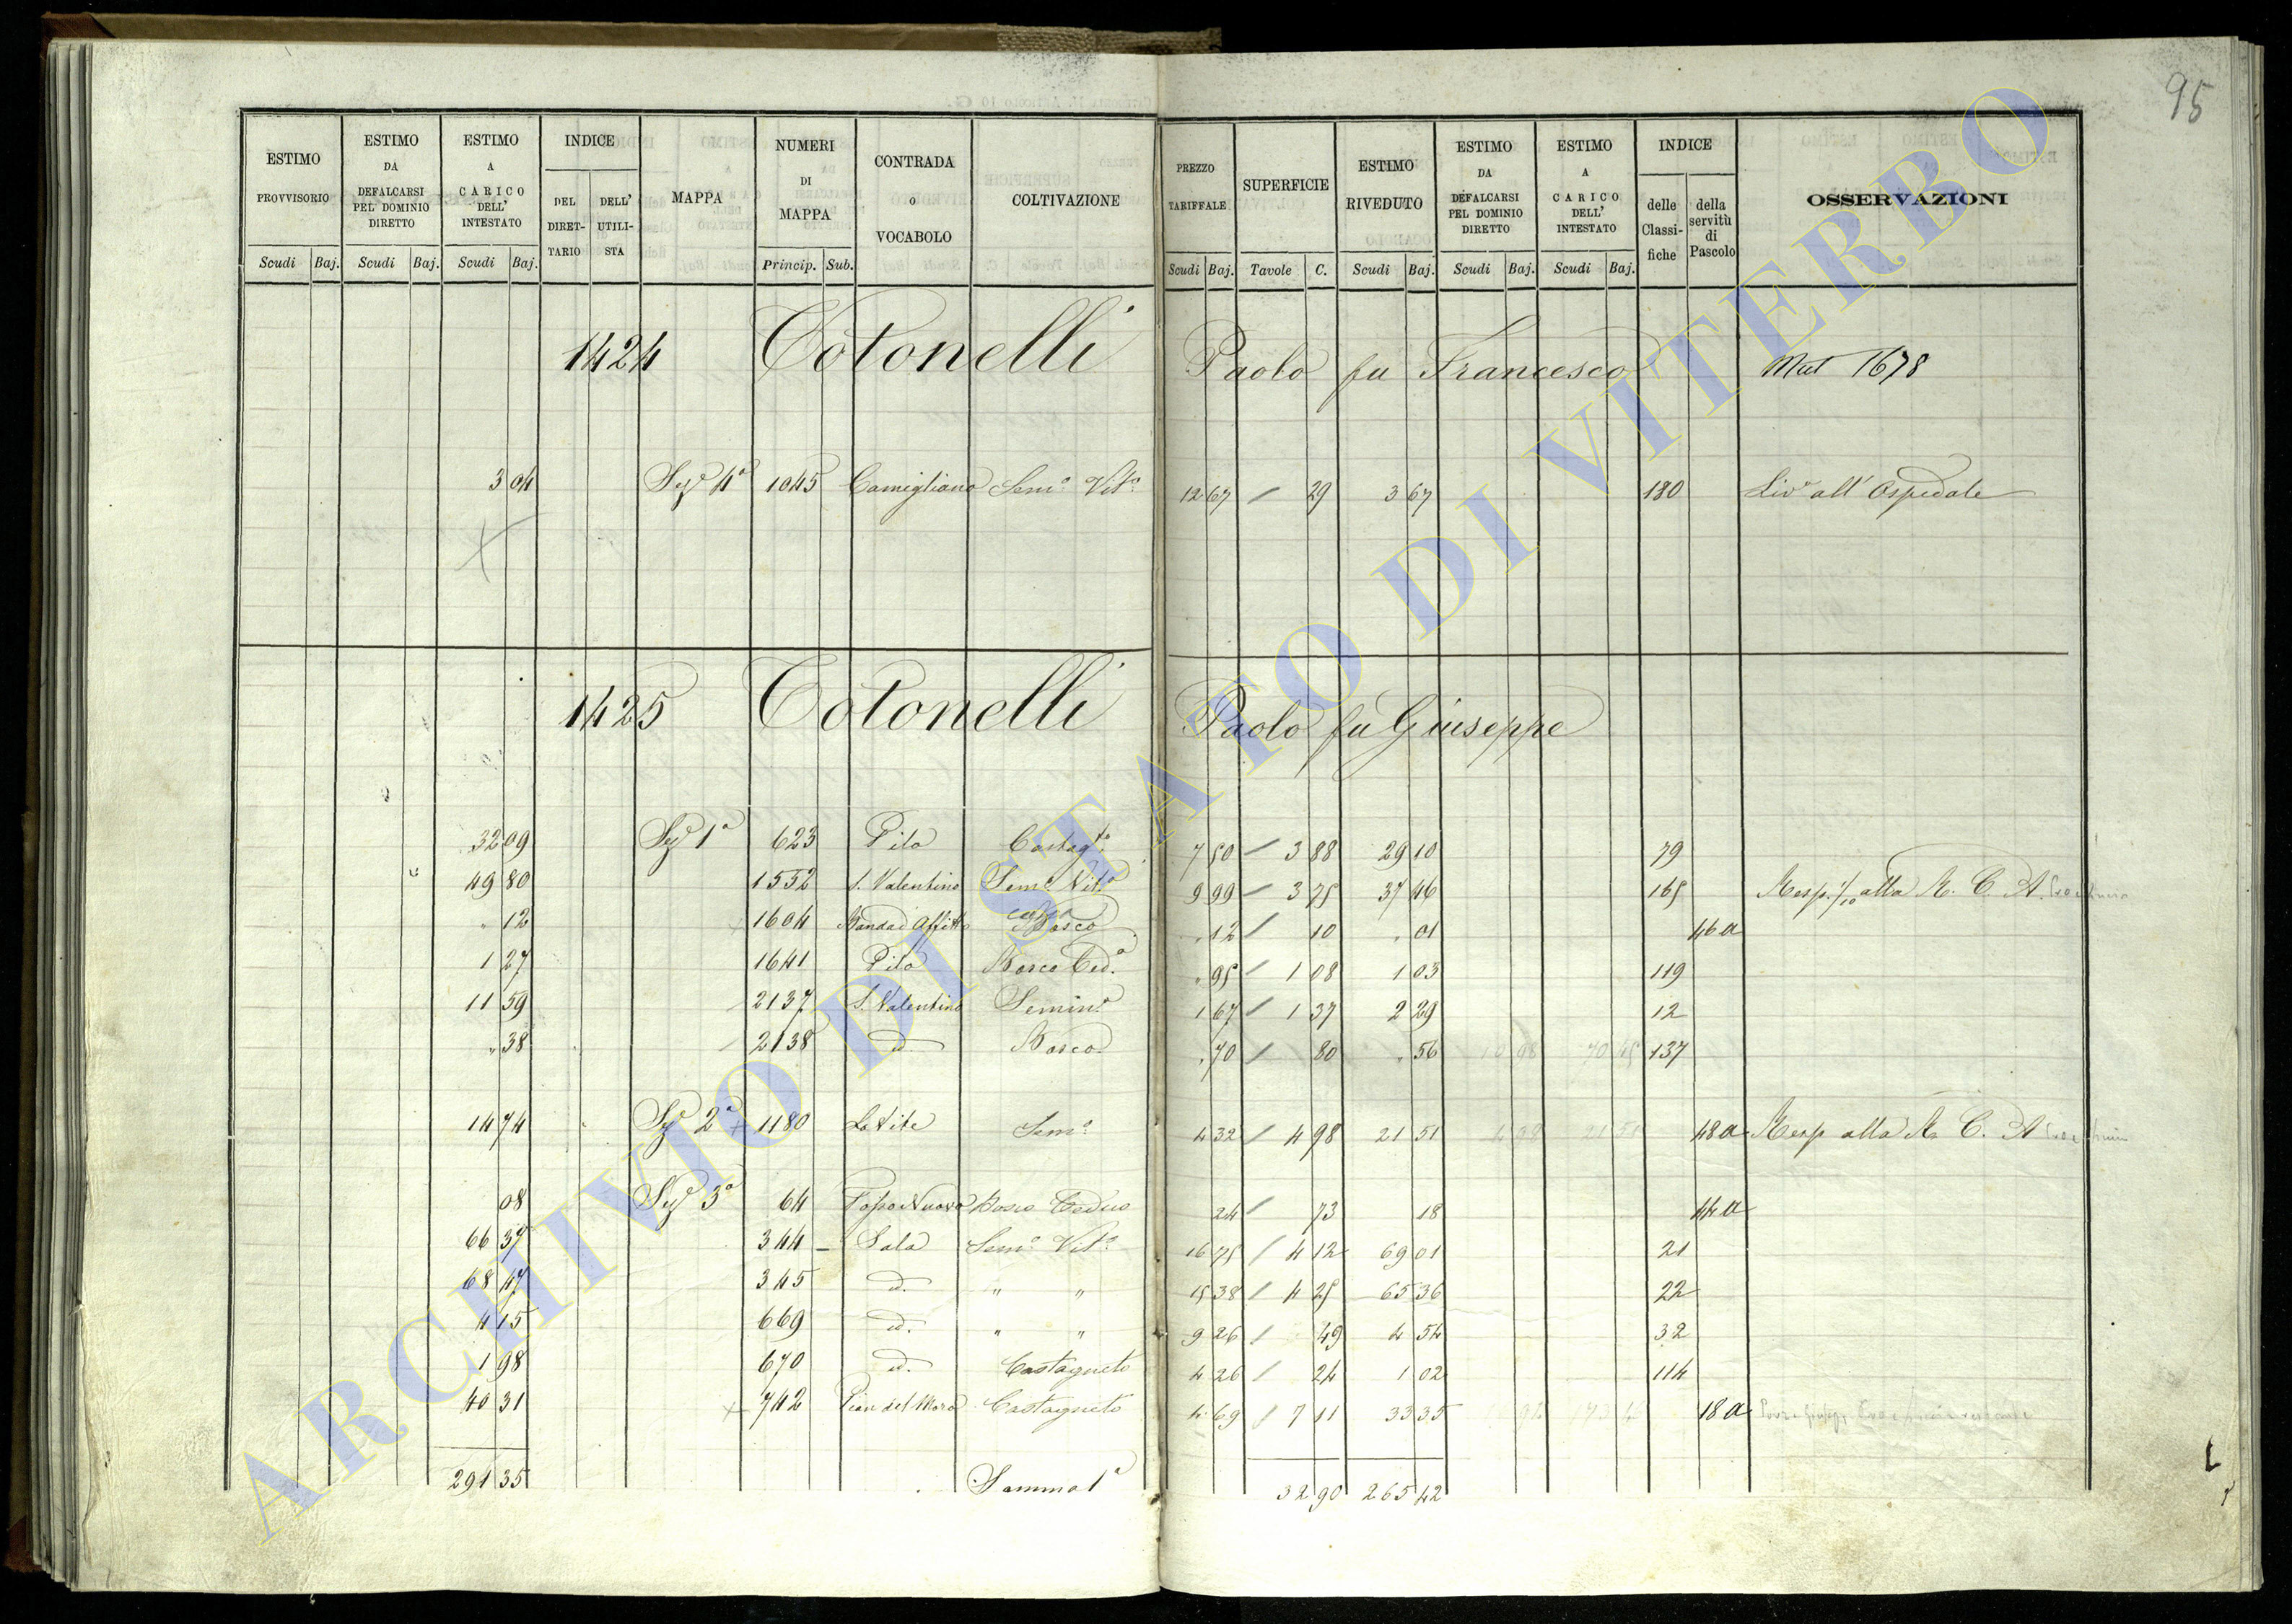 95
ESTIMO PROVVISORIO
Scudi Baj.
ESTIMO DA DEFALCARSI PEL DOMINIO DIRETTO
Scudi Baj.
ESTIMO A CARICO DELL' INTESTATO
Scudi Baj.
INDICE
DEL DIRET-TARIO
DELL' UTILI-STA
MAPPA
NUMERI DI MAPPA
Princip. Sub.
CONTRADA o VOCABOLO
COLTIVAZIONE
PREZZO TARIFFALE
Scudi Baj.
SUPERFICIE
Tavole C.
ESTIMO RIVEDUTO
Scudi Baj.
ESTIMO DA DEFALCARSI PEL DOMINIO DIRETTO
Scudi Baj.
ESTIMO A CARICO DELL' INTESTATO
Scudi Baj.
INDICE
delle Classi-fiche
della servitù di Pascolo
OSSERVAZIONI
1424 Totonelli Paolo fu Francesco Mut 1678
3 04 Sez.e 4a 1045 Camigliano Sem.o Vit.o 12 67 / 29 3 67 180 Liv.o all' Ospedale
1425 Totonelli Paolo fu Giuseppe
32 09 Sez.e 1a 623 Pila Castag.to 7 50 / 3 88 29 10 79
49 80 1552 S. Valentino Sem.o Vit.o 9 99 / 3 75 37 46 165 Resp. 1/10 alla R. C. A.
" 12 1604 Bosco " 12 / 10 " 01 46 a
1 27 1641 Pila Bosco Ced.o " 95 / 1 08 1 03 119
11 59 2137 S. Valentino Semin.o 1 67 / 1 37 2 29 12
" 38 2138 id. Bosco " 70 / 80 " 56 137
14 74 Sez.e 2a + 1180 La Vite Sem.o 4 32 / 4 98 21 51 48 a Resp alla R. C. A
08 Sez.e 3a 64 Fosso Nuovo Bosco Ceduo 24 / 73 18 44 a
66 37 344 Sala Sem.o Vit.o 16 75 / 4 12 69 01 21
68 47 345 id. " " 15 38 / 4 25 65 36 22
4 15 669 id. " " 9 26 / 49 4 54 32
1 98 670 id. Castagneto 4 26 / 24 1 02 114
40 31 + 742 Pian del Moro Castagneto 4 69 / 7 11 33 35 18 a
291 35 Somma 1a 32 90 265 42
ARCHIVIO DI STATO DI VITERBO